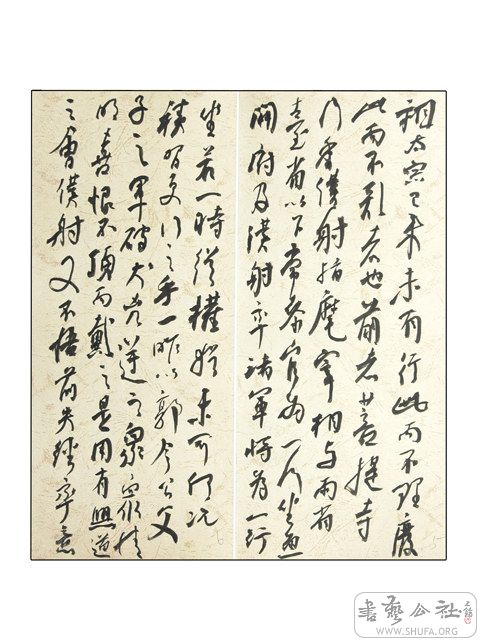 祖太宗已來未有行此而不理廢
此而不亂者也前者菩提寺
行香僕射指麾宰相与兩省
臺省以下常參官為一行坐魚
開府及僕射率諸軍將為一行
坐若一時從權猶未可何況
積習更行之乎一昨以郭令公父
子之軍破犬羊凶逆之眾眾情
欣喜恨不頂而戴之是用有興道
之會僕射又不悟前失徑率意
書藝公社
WWW.SHUFA.ORG